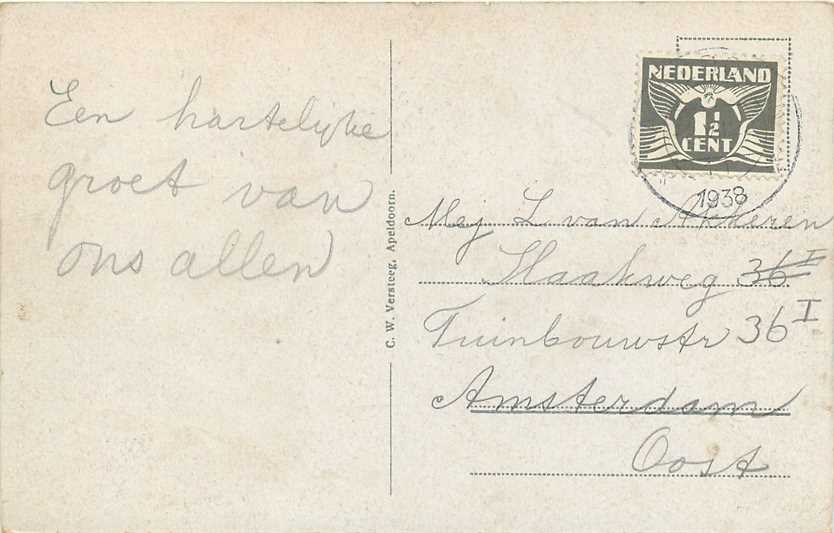 Een hartelijke
groet van
ons allen
C. W. Versteeg, Apeldoorn.
NEDERLAND
1½
CENT
1938
Mej L van Akkeren
Haakweg 36 I
Tuinbouwstr 36 I
Amsterdam
Oost